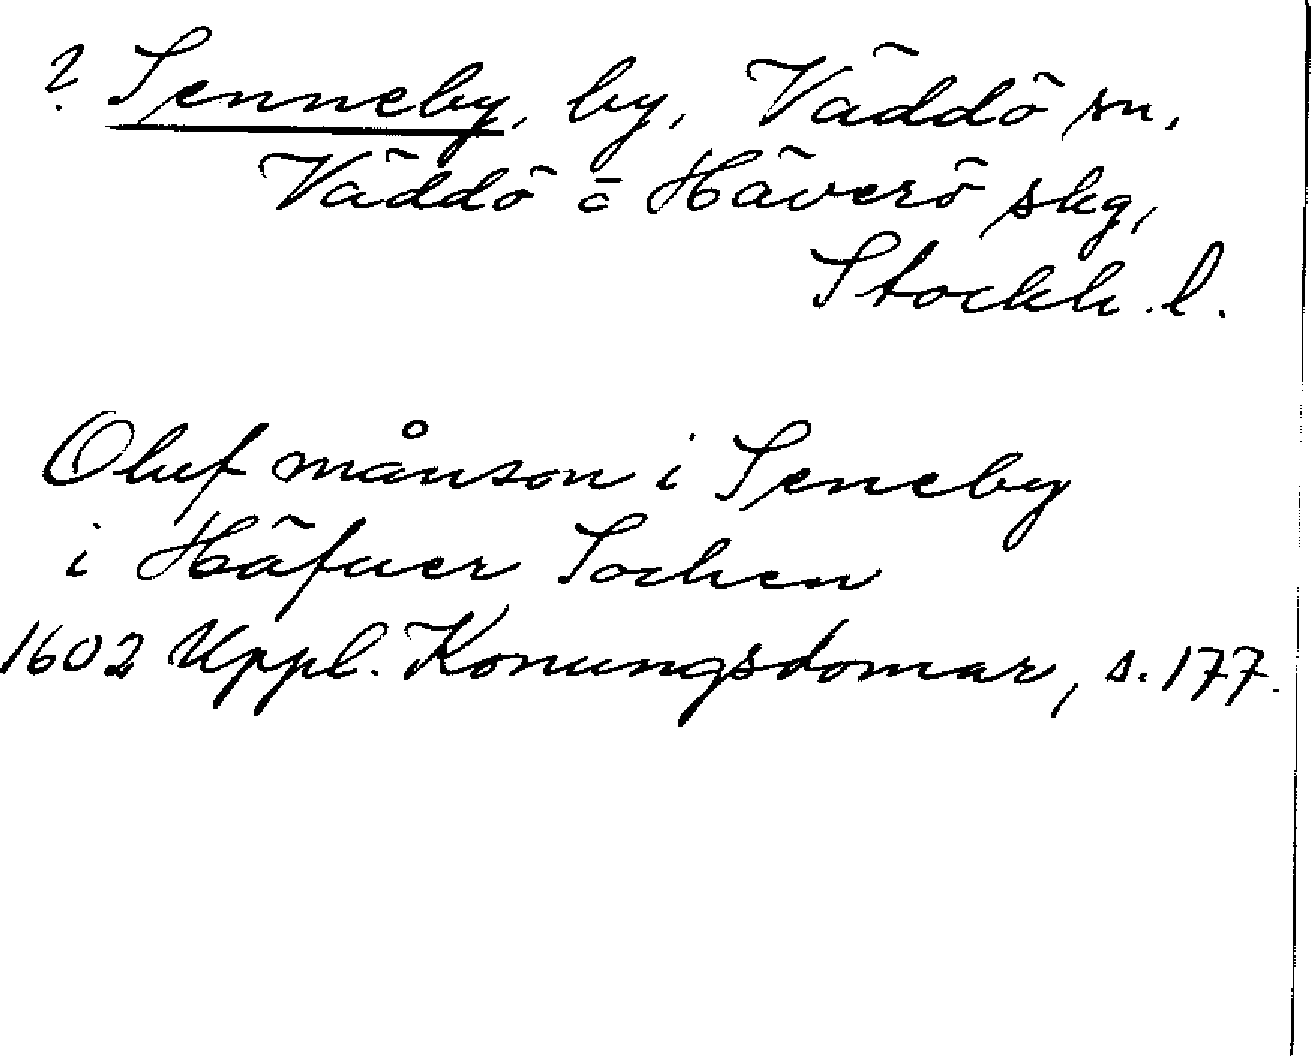 ? Senneby, by, Väddö sn,
Väddö o Häverö skg,
Stockh. l.
Oluf månson i Seneby
i Häfuer Sochen
1602 Uppl. Konungsdomar, s. 177.